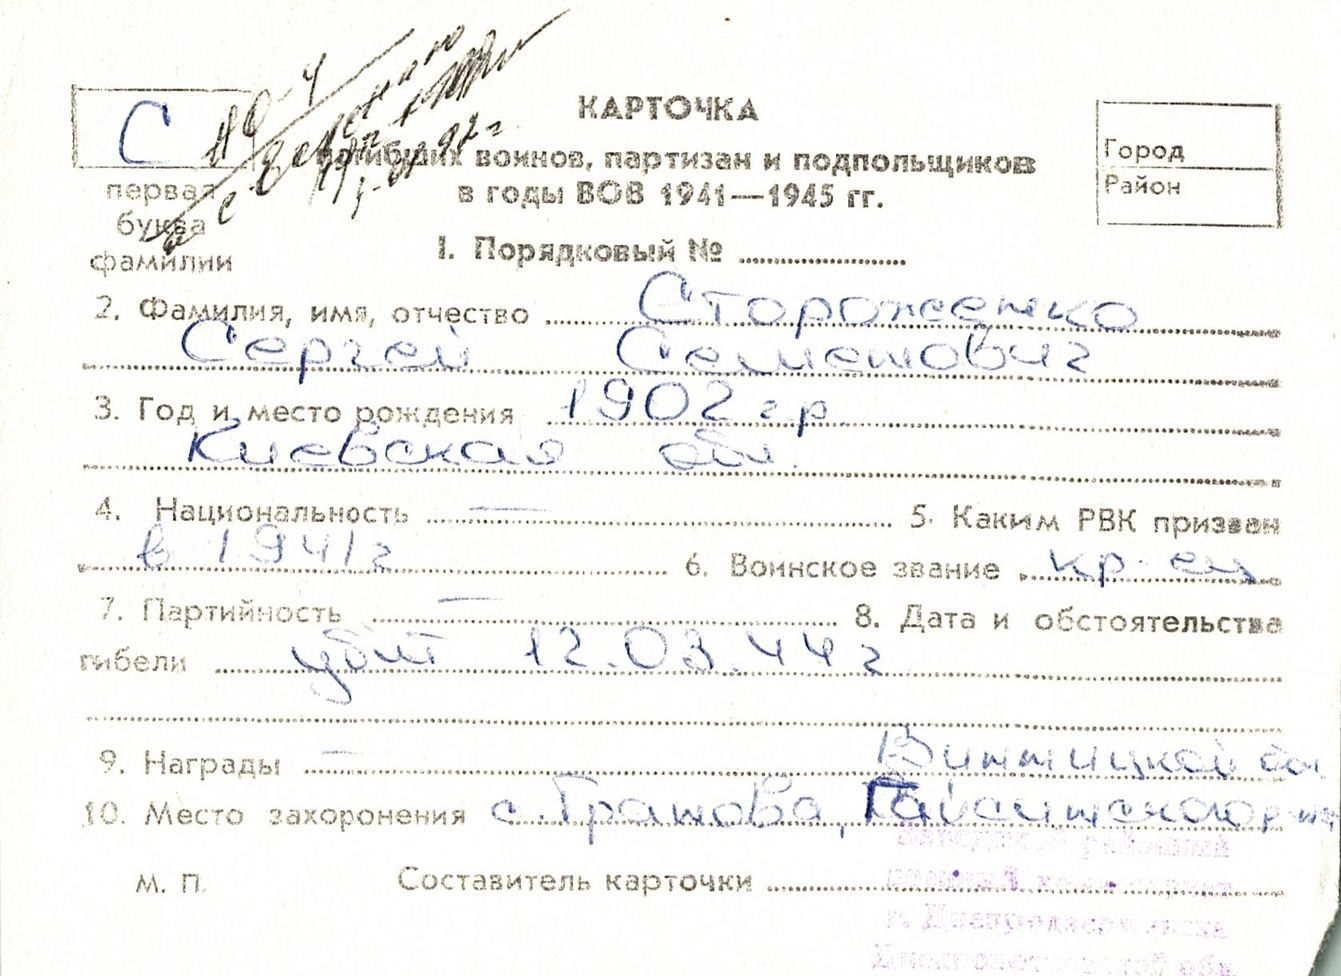 С
КАРТОЧКА
погибших воинов, партизан и подпольщиков
в годы ВОВ 1941—1945 гг.
Город
Район
первая
буква
фамилии
1. Порядковый №
2. Фамилия, имя, отчество Стороженко
Сергей Семенович
3. Год и место рождения 1902 г р
Киевская обл.
4. Национальность — 5. Каким РВК призван
в 1941 г 6. Воинское звание кр-ец
7. Партийность — 8. Дата и обстоятельства
гибели убит 12.03.44 г
9. Награды — Винницкой обл
10. Место захоронения с. Гранова, Гайсинского р-на
М. П. Составитель карточки
районный
г. Днепродзержинска
Днепропетровской обл